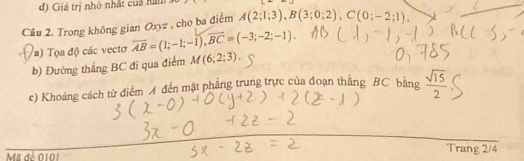 d) Giá trị nhỏ nhất của hàm số
Câu 2. Trong không gian Oxyz , cho ba điểm A(2;1;3), B(3;0;2), C(0;-2;1). AB (1,-1,-1) BC(-3;-
a) Tọa độ các vectơ AB = (1;-1;-1), BC = (-3;-2;-1). 0,785
b) Đường thẳng BC đi qua điểm M(6;2;3). S
c) Khoảng cách từ điểm A đến mặt phẳng trung trực của đoạn thẳng BC bằng √15/2 . S
3(x-0)+0(y+2)+2(z-1)
3x-0 +2z-2
5x-2z=2
Trang 2/4
Mã đề 0101